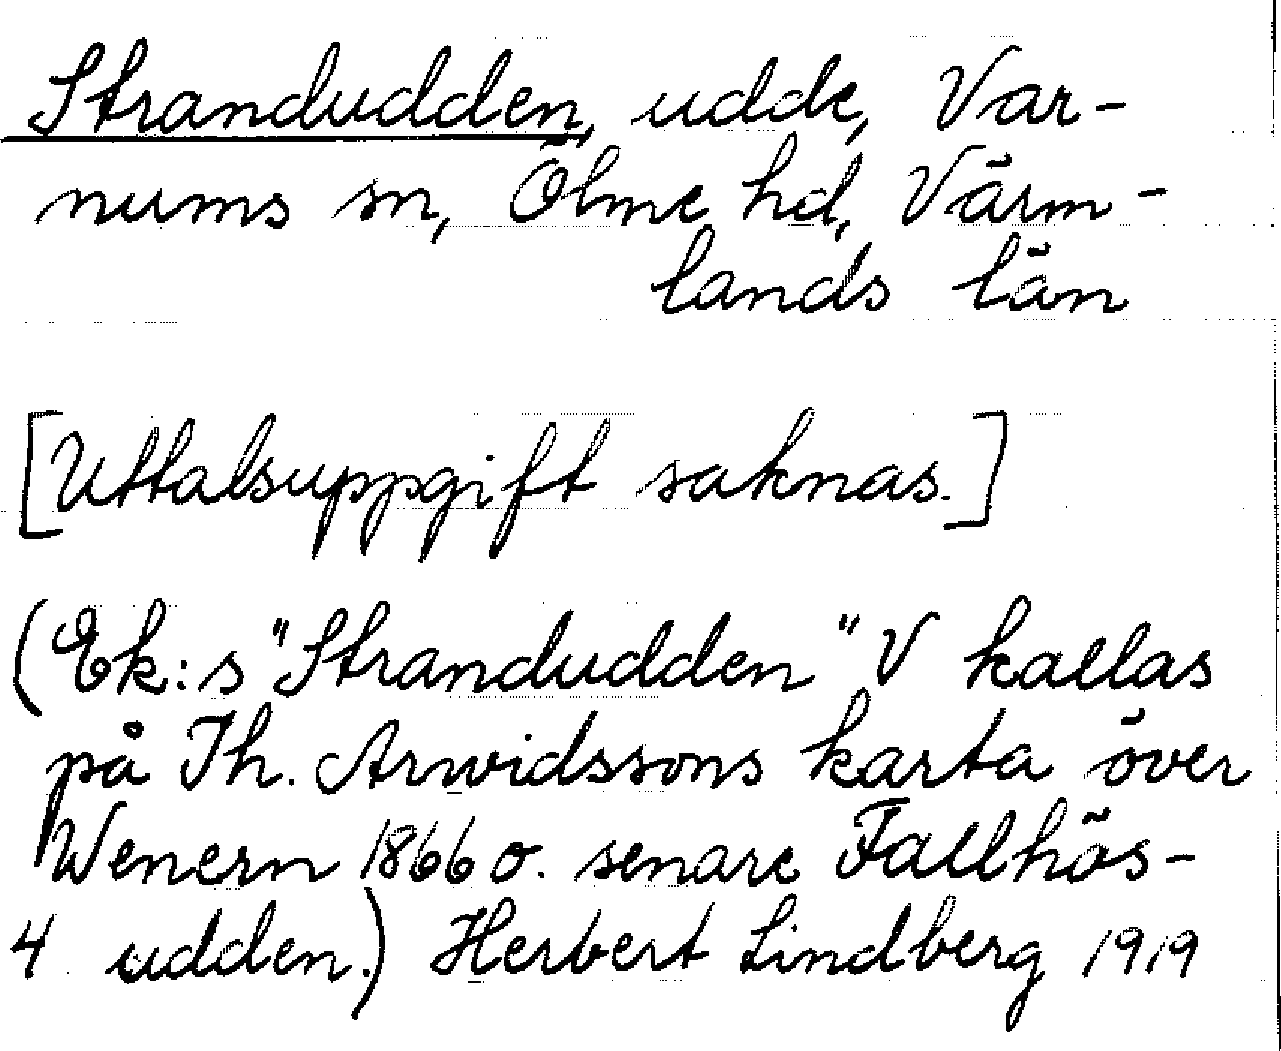 Strandudden, udde, Var-
nums sn, Ölme hd, Värm-
lands län
[Uttalsuppgift saknas.]
(Ek:s "Strandudden" V kallas
på Th. Arwidssons karta över
Wenern 1866 o. senare Fallhös-
4 udden.) Herbert Lindberg 1919